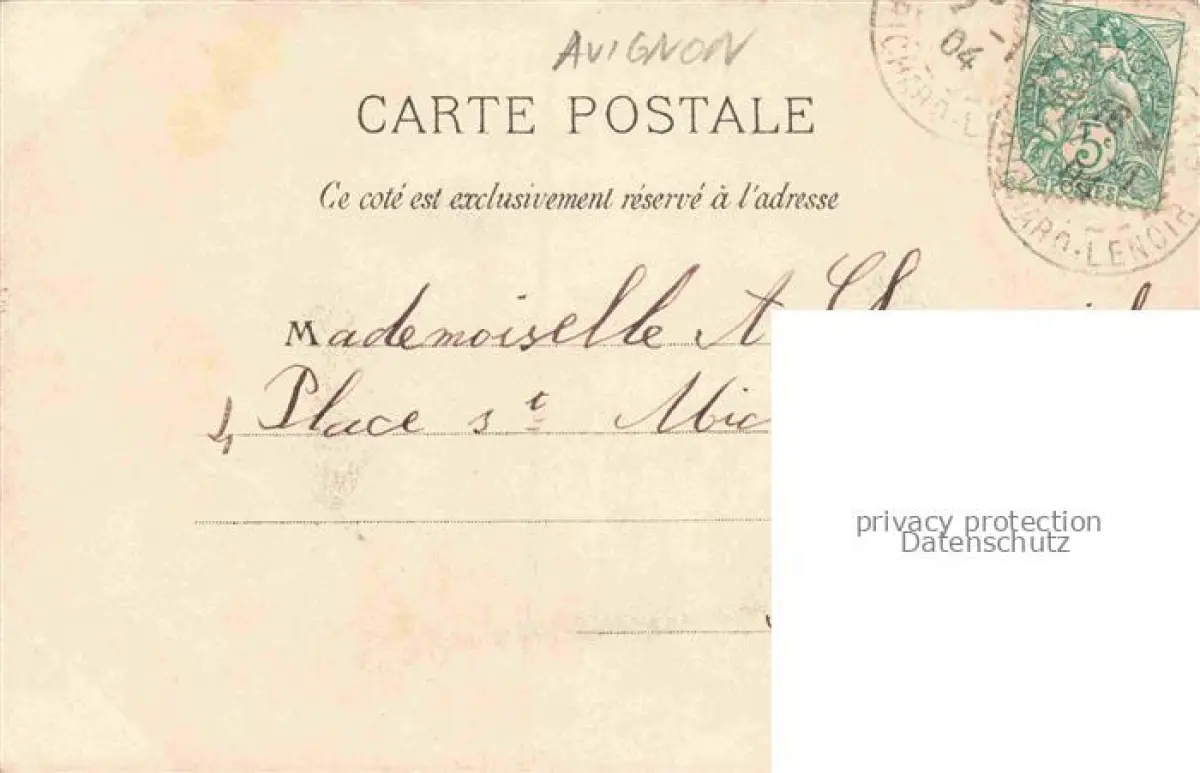 AVIGNON
CARTE POSTALE
Ce coté est exclusivement réservé à l'adresse
04
5c
POSTES
RICHARD-LENOIR
Mademoiselle A
Place st
privacy protection
Datenschutz